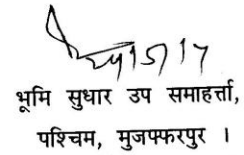 भूमि सुधार उप समाहर्त्ता,
पश्चिम, मुजफ्फरपुर ।